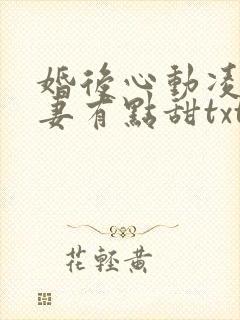 婚後心動凌
妻有點甜txt
花輕黃